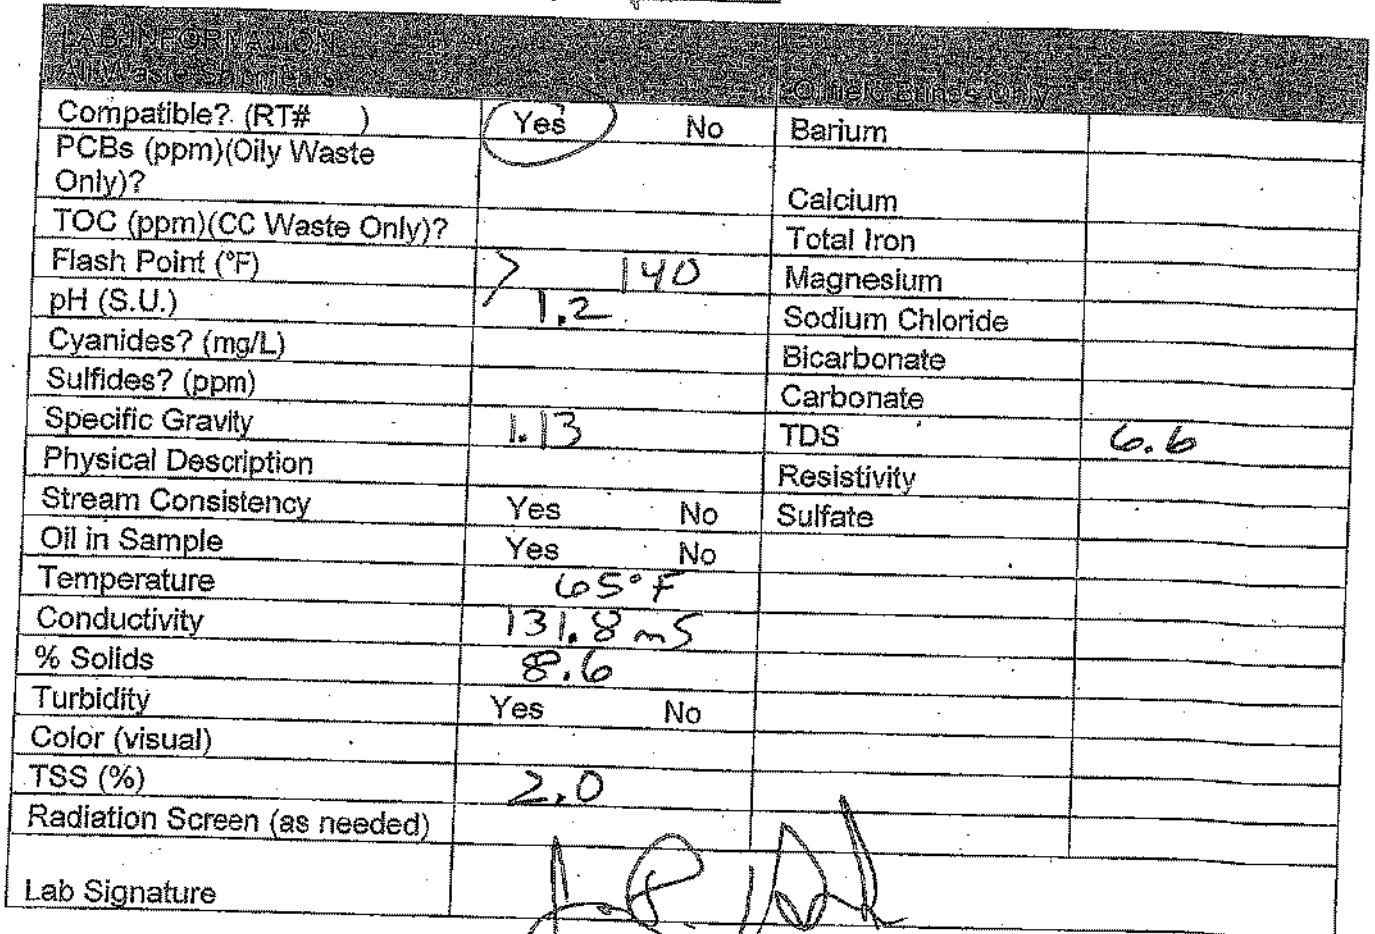 LAB INFORMATION
All Waste Shipments
Oilfield Brines Only
Compatible? (RT# ) Yes No Barium
PCBs (ppm)(Oily Waste
Only)? Calcium
TOC (ppm)(CC Waste Only)? Total Iron
Flash Point (°F) > 140 Magnesium
pH (S.U.) 1.2 Sodium Chloride
Cyanides? (mg/L) Bicarbonate
Sulfides? (ppm) Carbonate
Specific Gravity 1.13 TDS 6.6
Physical Description Resistivity
Stream Consistency Yes No Sulfate
Oil in Sample Yes No
Temperature 65°F
Conductivity 131.8 mS
% Solids 8.6
Turbidity Yes No
Color (visual)
TSS (%) 2.0
Radiation Screen (as needed)
Lab Signature